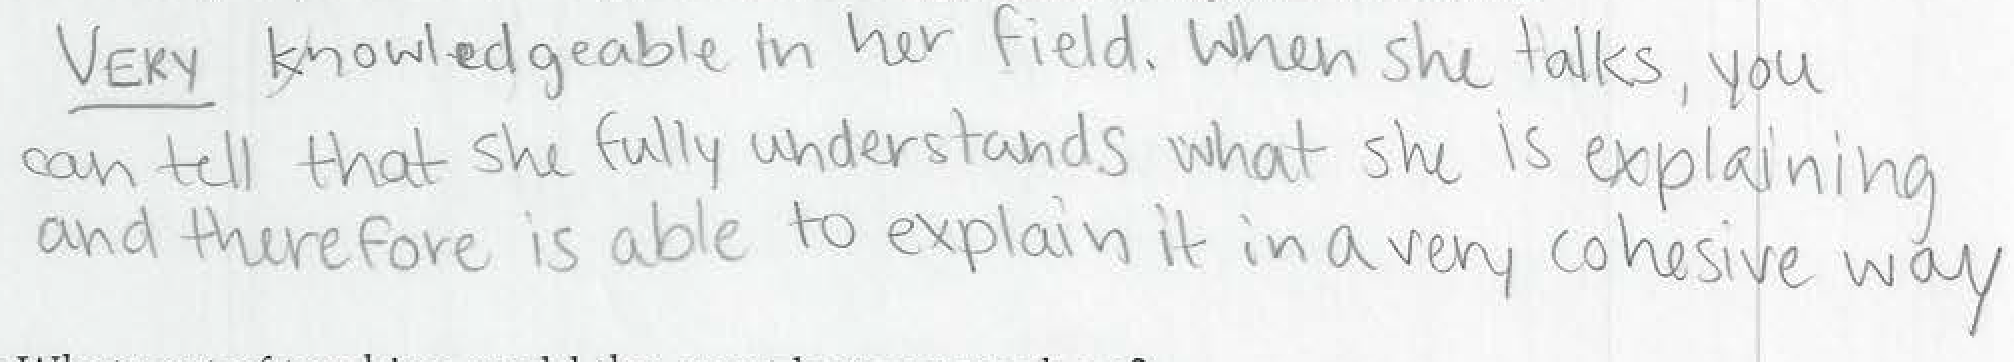 VERY knowledgeable in her field. When she talks, you
can tell that she fully understands what she is explaining
and therefore is able to explain it in a very cohesive way